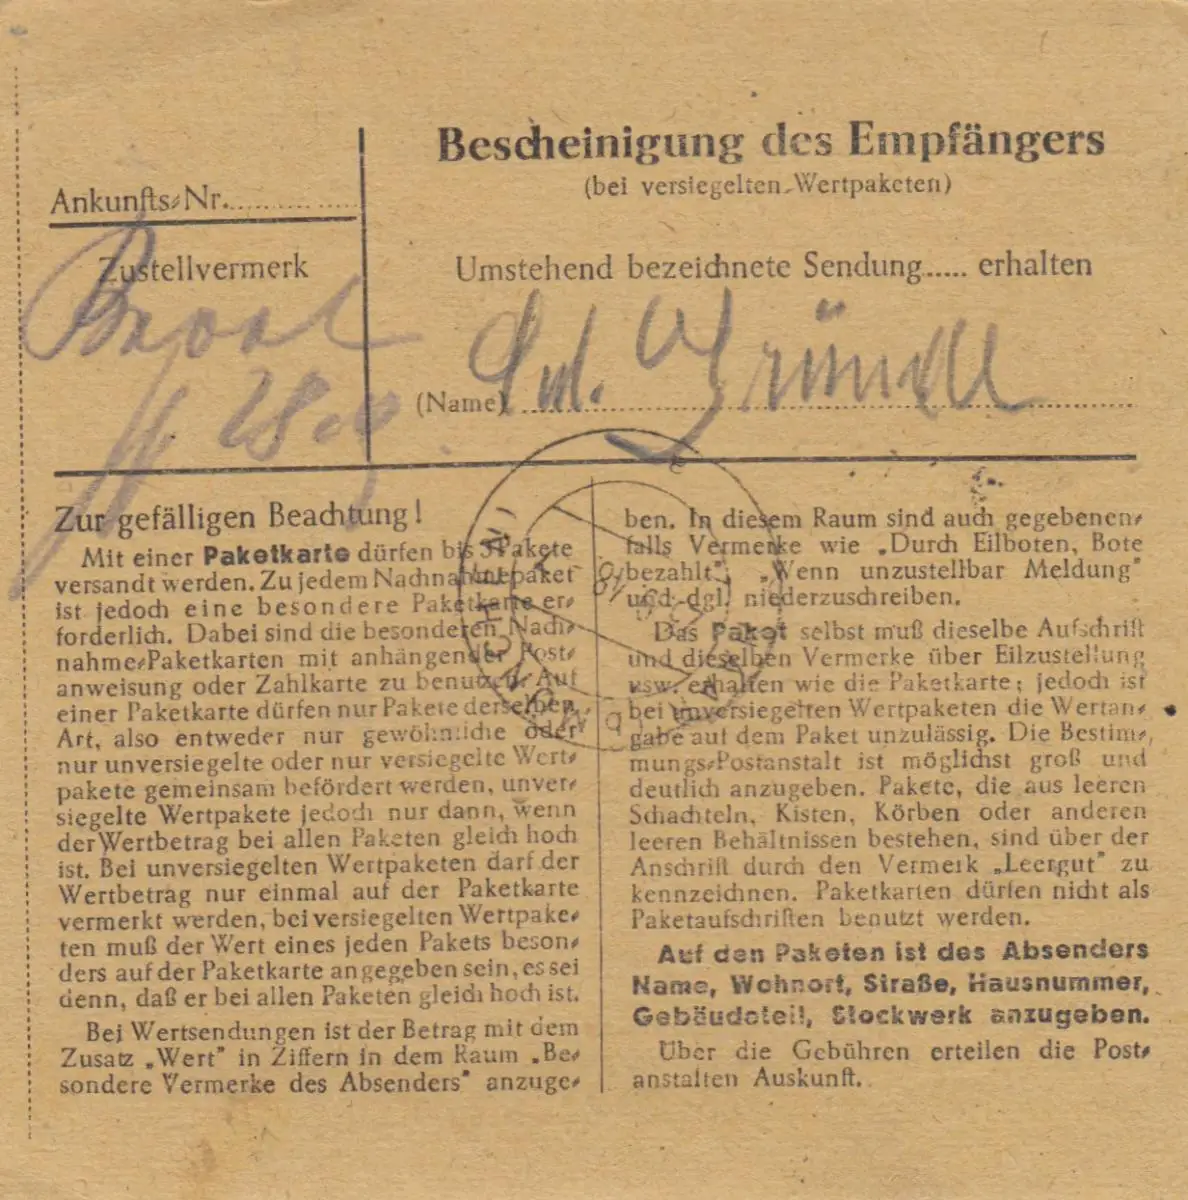 Bescheinigung des Empfängers
(bei versiegelten Wertpaketen)
Ankunfts-Nr.
Zustellvermerk
Umstehend bezeichnete Sendung..... erhalten
28.9
(Name)
Zur gefälligen Beachtung!
Mit einer Paketkarte dürfen bis 3 Pakete
versandt werden. Zu jedem Nachnahmepaket
ist jedoch eine besondere Paketkarte er-
forderlich. Dabei sind die besonderen Nach-
nahme-Paketkarten mit anhängender Post-
anweisung oder Zahlkarte zu benutzen. Auf
einer Paketkarte dürfen nur Pakete derselben
Art, also entweder nur gewöhnliche oder
nur unversiegelte oder nur versiegelte Wert-
pakete gemeinsam befördert werden, unver-
siegelte Wertpakete jedoch nur dann, wenn
der Wertbetrag bei allen Paketen gleich hoch
ist. Bei unversiegelten Wertpaketen darf der
Wertbetrag nur einmal auf der Paketkarte
vermerkt werden, bei versiegelten Wertpake-
ten muß der Wert eines jeden Pakets beson-
ders auf der Paketkarte angegeben sein, es sei
denn, daß er bei allen Paketen gleich hoch ist.
Bei Wertsendungen ist der Betrag mit dem
Zusatz „Wert" in Ziffern in dem Raum „Be-
sondere Vermerke des Absenders" anzuge-
ben. In diesem Raum sind auch gegebenen-
falls Vermerke wie „Durch Eilboten, Bote
bezahlt", „Wenn unzustellbar Meldung"
und dgl. niederzuschreiben.
Das Paket selbst muß dieselbe Aufschrift
und dieselben Vermerke über Eilzustellung
usw. erhalten wie die Paketkarte; jedoch ist
bei unversiegelten Wertpaketen die Wertan-
gabe auf dem Paket unzulässig. Die Bestim-
mungs-Postanstalt ist möglichst groß und
deutlich anzugeben. Pakete, die aus leeren
Schachteln, Kisten, Körben oder anderen
leeren Behältnissen bestehen, sind über der
Anschrift durch den Vermerk „Leergut" zu
kennzeichnen. Paketkarten dürfen nicht als
Paketaufschriften benutzt werden.
Auf den Paketen ist des Absenders
Name, Wohnort, Straße, Hausnummer,
Gebäudeteil, Stockwerk anzugeben.
Über die Gebühren erteilen die Post-
anstalten Auskunft.